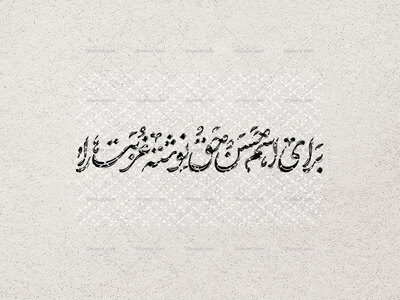 برای اسم حسن حق نوشته غربت را